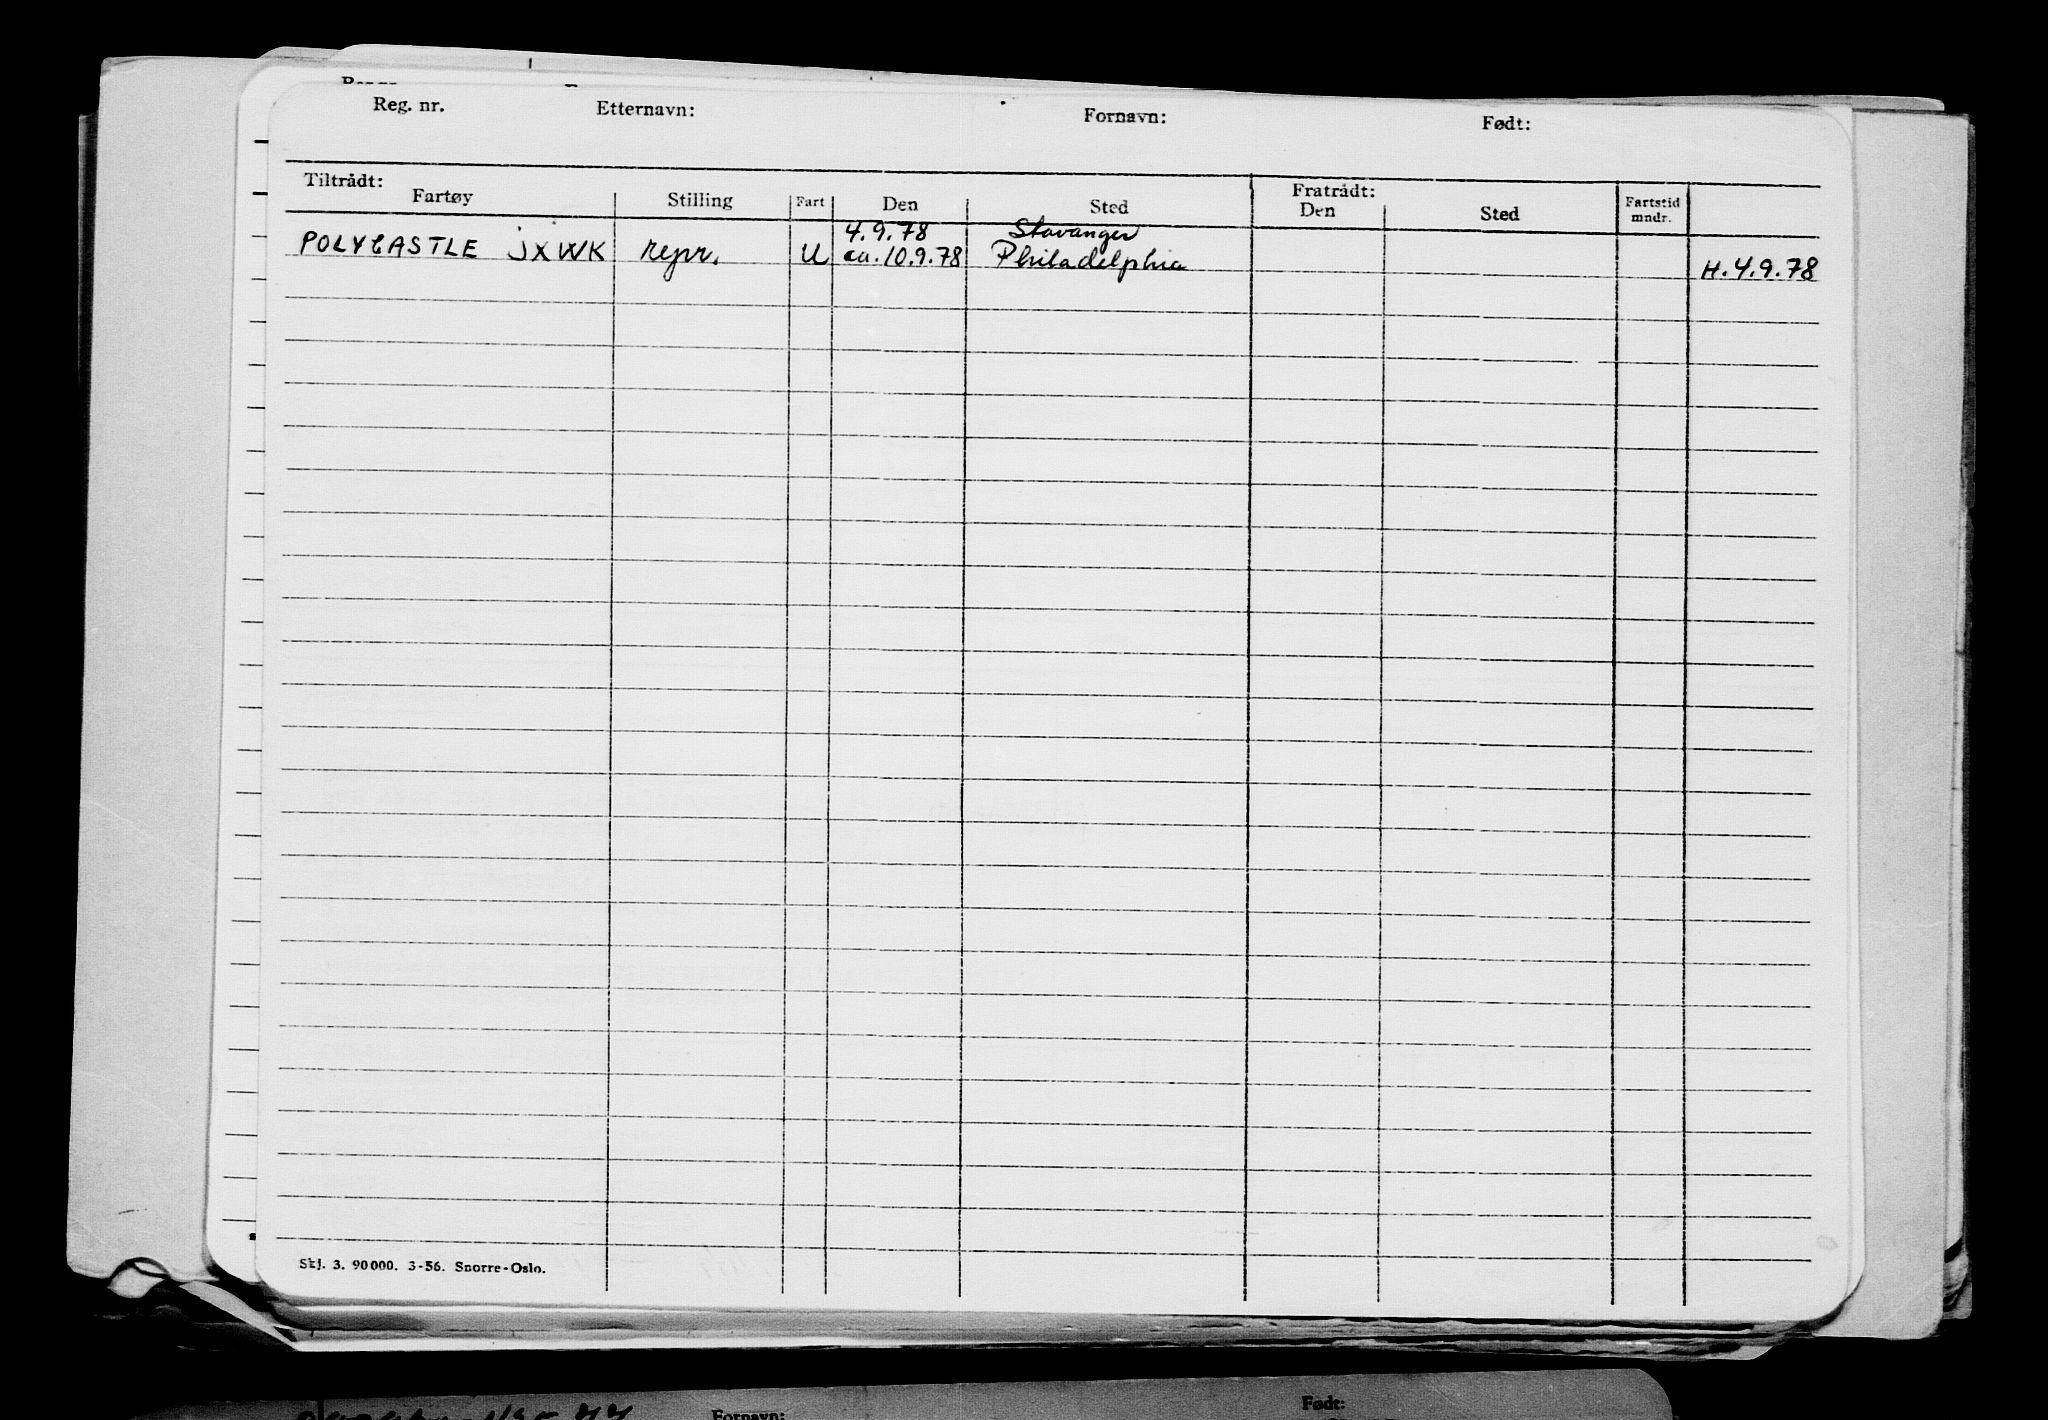 Reg. nr. Etternavn: Fornavn: Født:
Tiltrådt: Fratrådt:
Fartøy Stilling Fart Den Sted Den Sted Fartstid mndr.
4.9.78 Stavanger
POLYCASTLE JXWK repr. U ca. 10.9.78 Philadelphia H. 4.9.78
Skj. 3. 90000. 3-56. Snorre-Oslo.
Fornavn: Født: